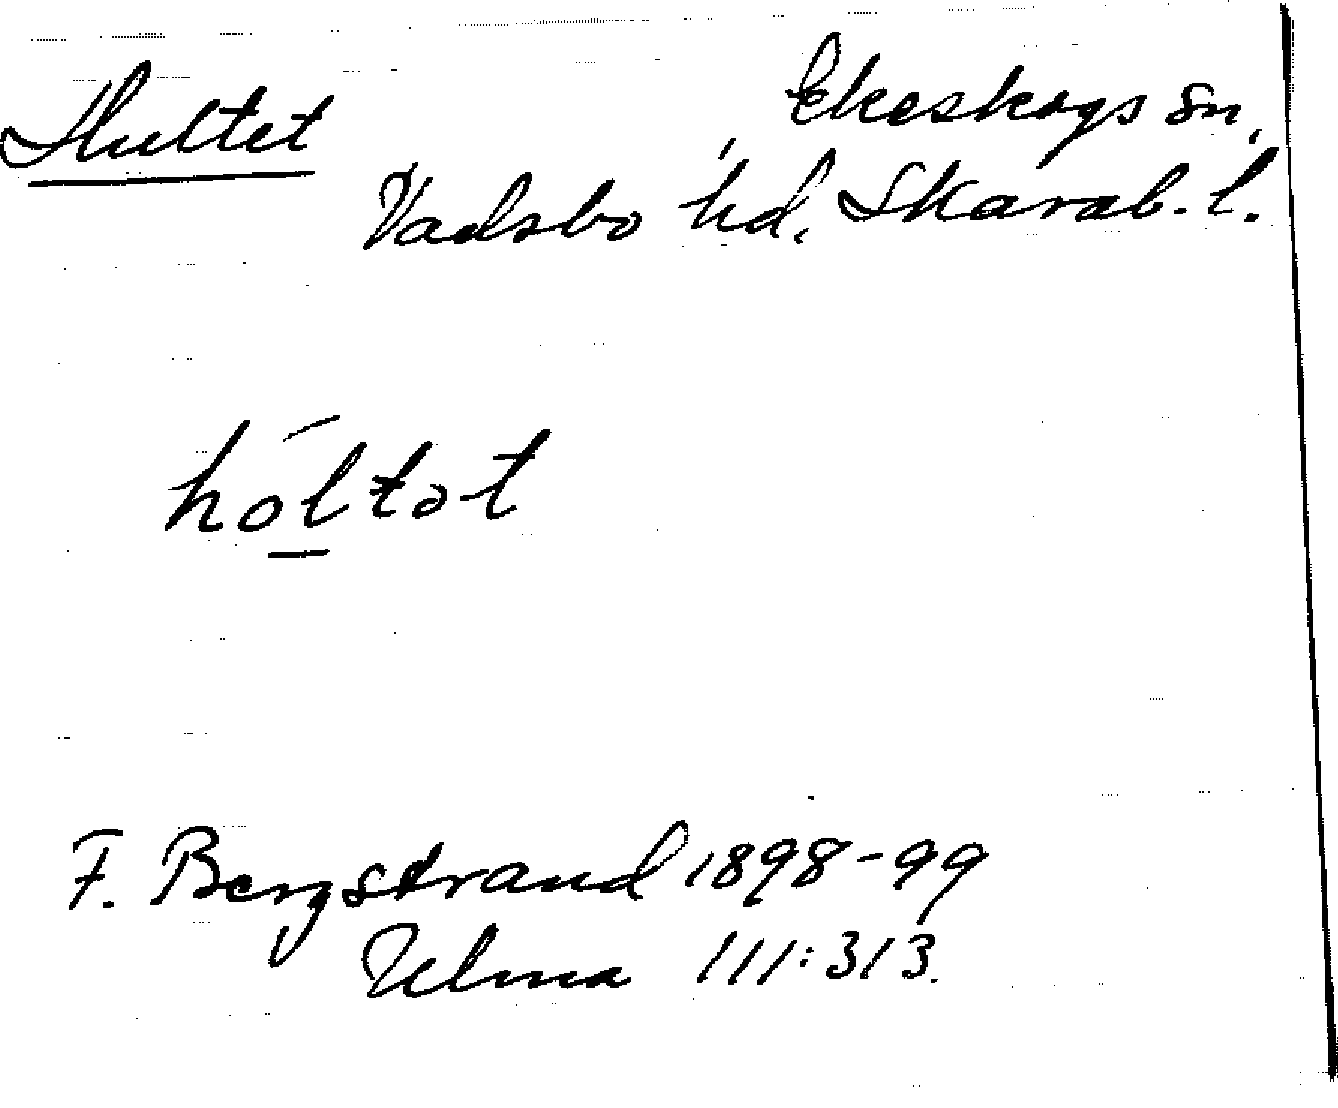 Hultet
Ekeskogs sn,
Vadsbo hd. Skarab. l.
hóltət
F. Bergstrand 1898-99
Ulma 111:313.